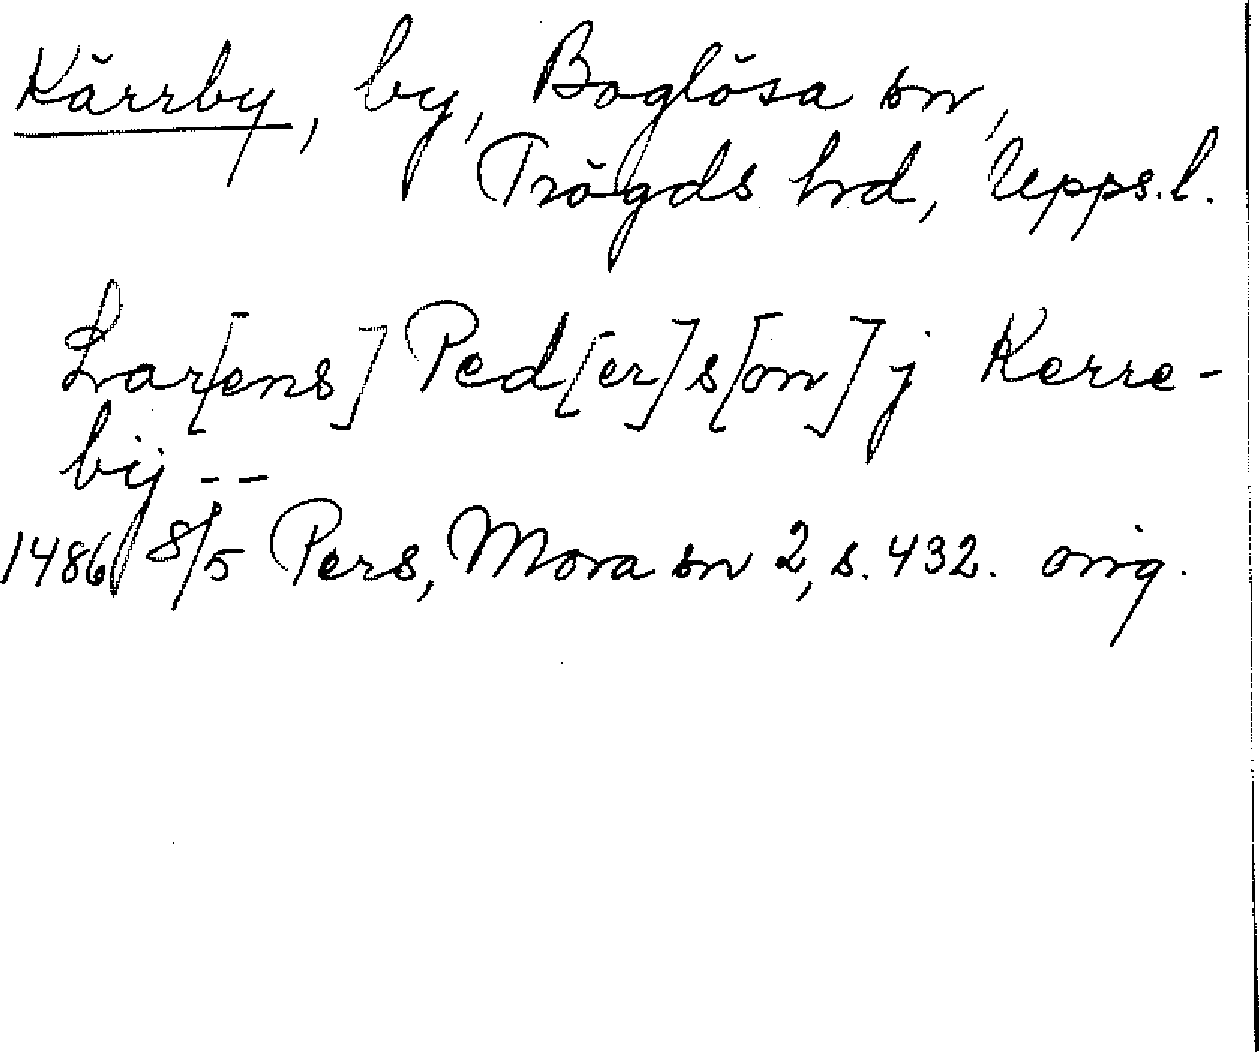 Kärrby, by, Boglösa sn,
Trögds hd, Upps.l.
Lar[ens] Ped[er]s[on] j Kerre-
bij --
1486 8/5 Pers, Mora sn 2, s. 432. orig.